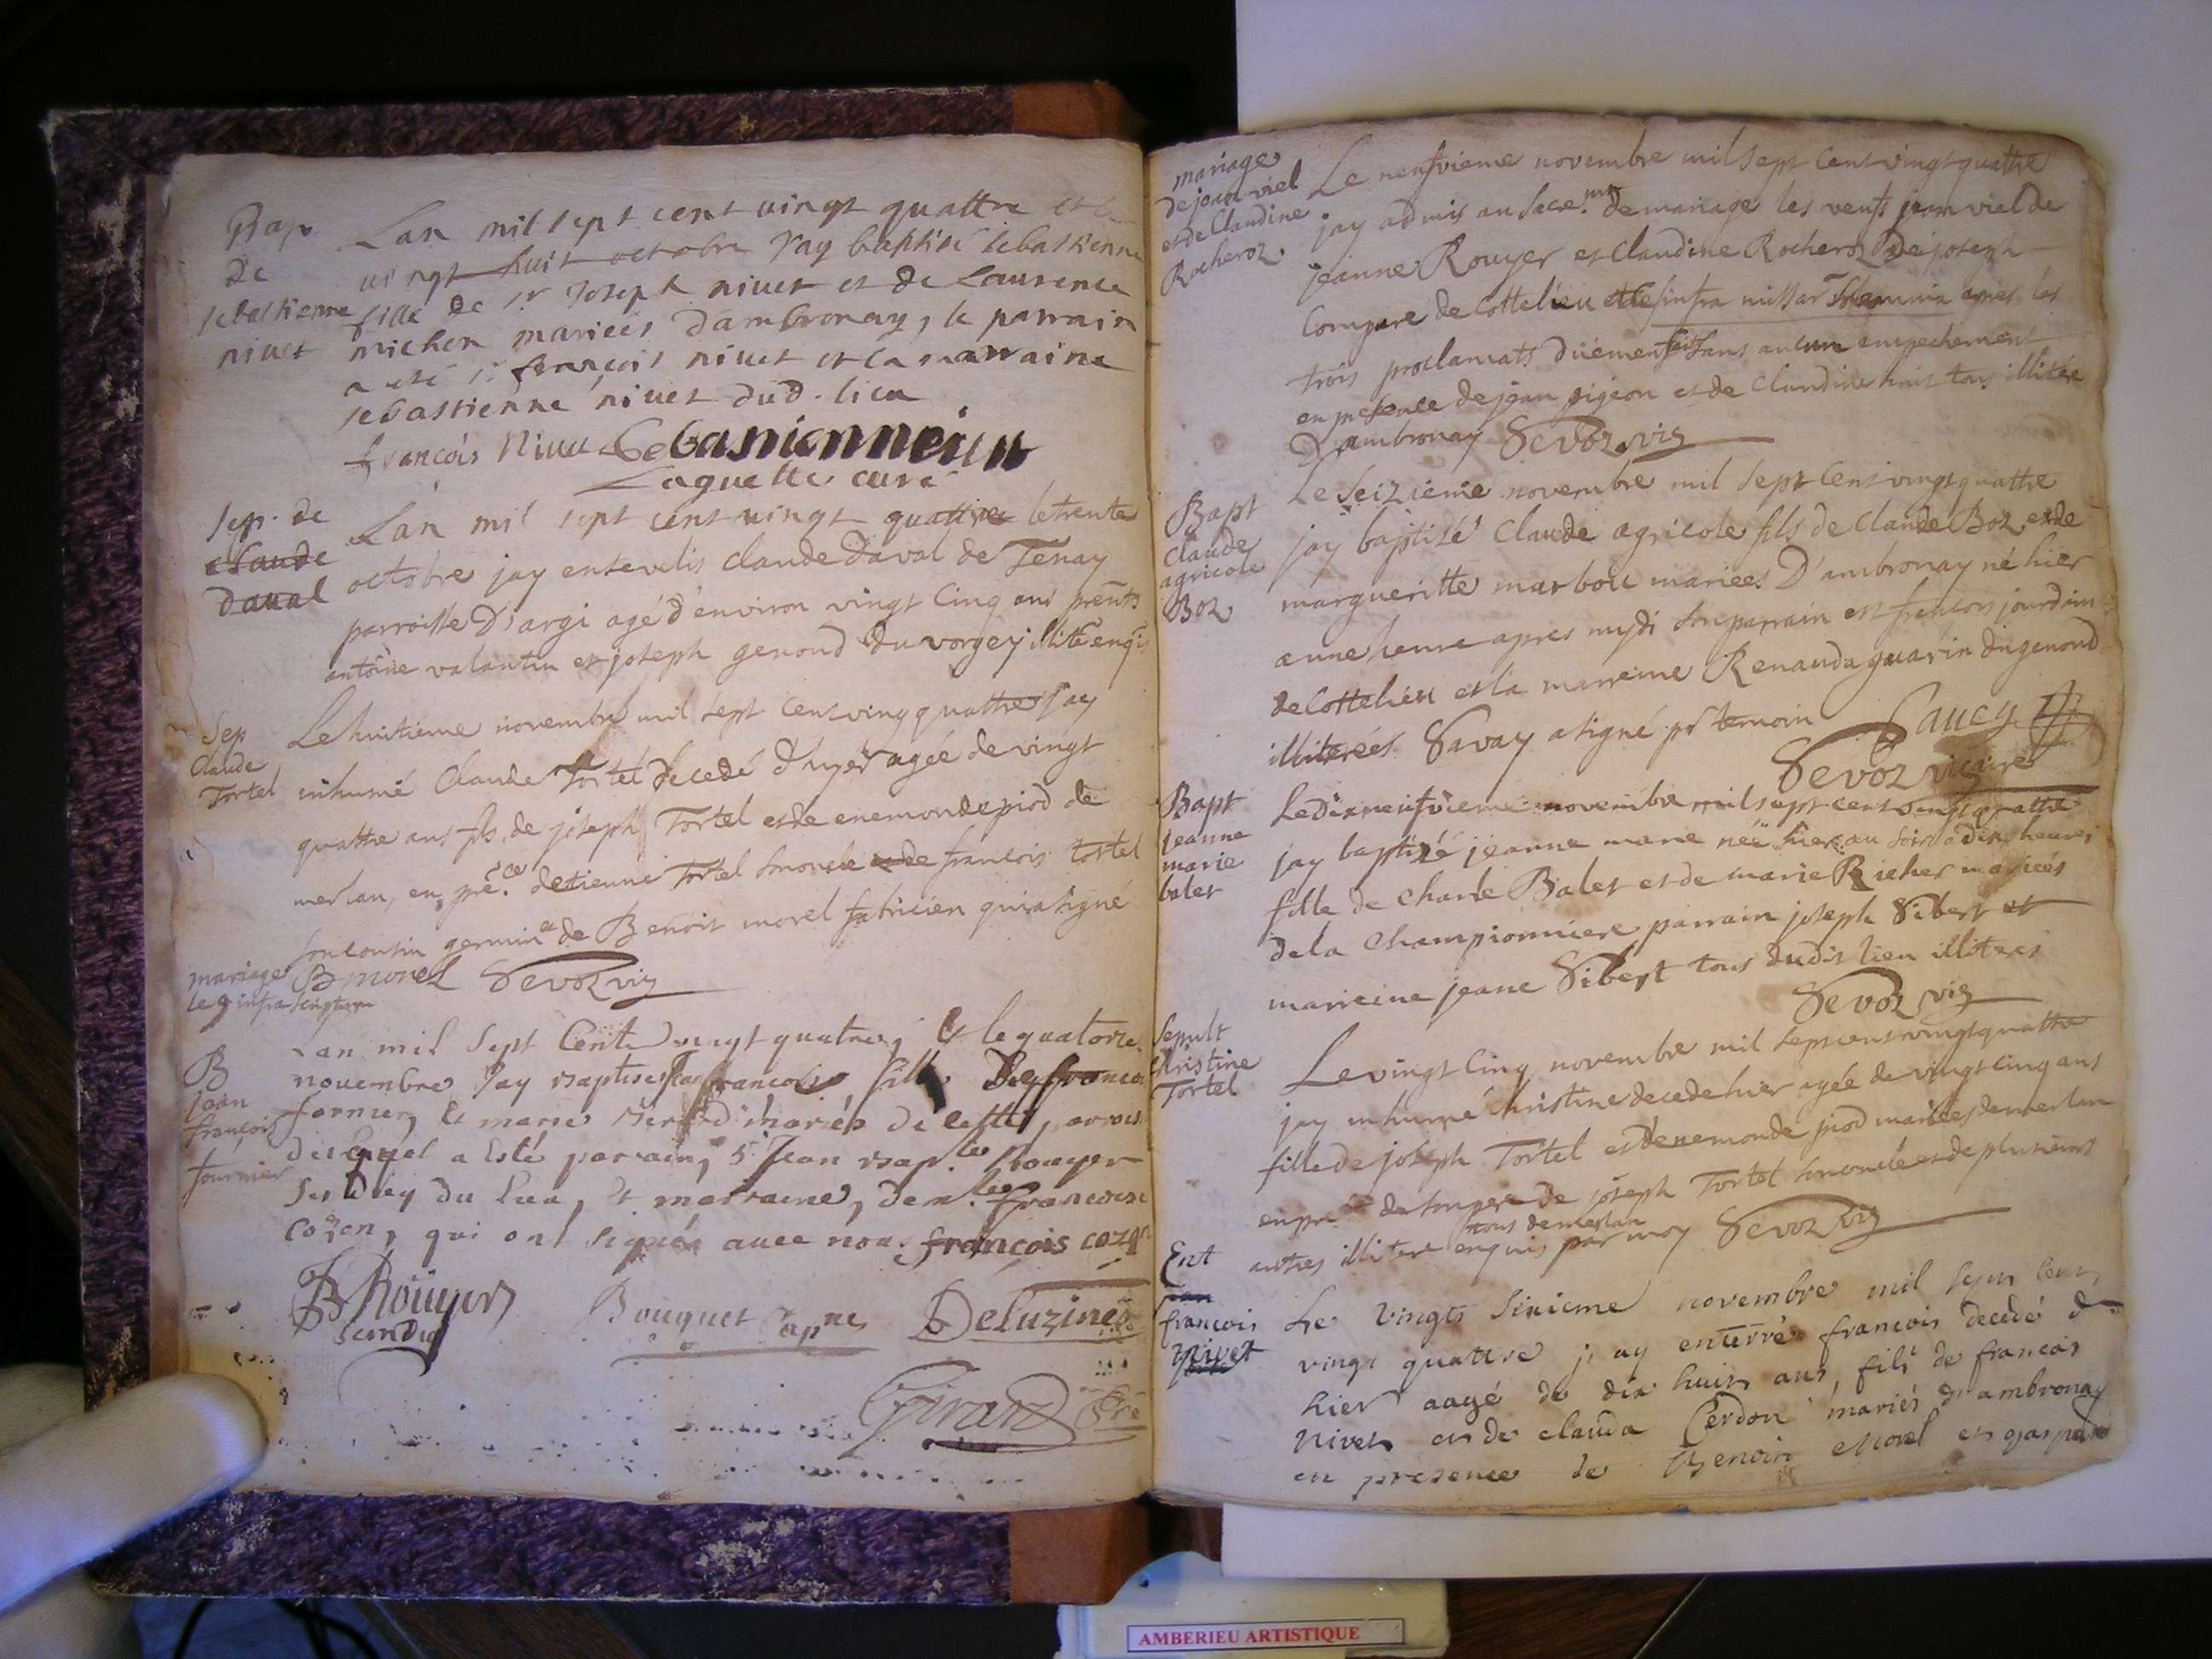 Bap
de
sebastienne
nivet
Lan mil sept cent vingt quattre et le
vingt huit octobre j'ay baptisé sebastienne
fille de sr joseph nivet et de Laurence
michon mariées d'ambronay, le parrain
a eté sr françois nivet et la marraine
sebastienne nivet dud. lieu
françois Nivet Sebastienne nivet
Laguette curé
sep. de
claude
daval
Lan mil sept cent vingt quattre le trente
octobre jay ensevelis claude Daval de Tenay
parroisse D'argi agé d'environ vingt Cinq ans prents
antoine valantin et joseph genoud du vorgey illité enqi
Sep
Claude
Tortel
Le huitieme novembre mil sept cent vingt quattre jay
inhumé Claude Tortel decedé d'hyer agée de vingt
quattre ans fils de joseph Tortel et de enemonde piod de
merlan, en préce detienne Tortel son oncle de françois tortel
son cousin germin et de Benoit morel fabricien qui a signé
B morel Sevoz vic
mariage
le 9 infra scriptum
B
jean
françois
fournier
Lan mil Sept Cent vingt quatre, Et le quatorze
novembre Jay Baptisé jean francois fils De francois
fornier, Et marie mariés de cette parois
du quel a Esté parrain, Sr Jean Bapte Rouyer
Sindiq du lieu, Et marraine, demlle francoise
cozon, qui ont signés avec nous françois cozon
JB Rouyer
Scindiq
Bouquet Capne
Deluzines
Girard Pre
mariage
de jean viel
et de Claudine
Rocheroz
Le neufvieme novembre mil sept Cent vingt quattre
jay admis au Sacremt de mariage les veufs jean viel de
jeanne Rouyer et Claudine Rocheroz De joseph
Compare de Cottelieu infra missar Solemnia apres les
trois proclamats düement faits sans aucun empechement
en presence de jean pigeon et de Claudine tous illitere
D'ambronay Sevoz vic
Bapt
claude
agricole
Boz
Le Seizieme novembre mil sept Cent vingt quattre
jay baptisé Claude agricole fils de Claude Boz et de
margueritte marbou mariees D'ambronay né hier
a une heure apres mydi son parrain est françois jourdain
de Cottelieu et la marreine Renauda guarin dugenoud
illiterées Savay a signé pr temoin Saucy
Sevoz vicaire
Bapt
jeanne
marie
balet
Le dixneufvieme novembre mil sept cent vingt quattre
jay baptizé jeanne marie neë hier au soir a dix heures
fille de Charle Balet et de marie Richer mariees
de la Championniere parrain joseph Sibert et
marieine jeane Sibert tous dudit lieu illiteres
Sevoz vic
Sepult
christine
Tortel
Le vingt Cinq novembre mil sept cent vingt quattre
jay inhumé christine decedé hier agée de vingt cinq ans
fille de joseph Tortel et de enemonde piod mariees de merlan
en prce de son pere de joseph Tortel son oncle et de plusieurs
tous de merlan
autres illitere enquis par moy Sevoz vic
Ent
jean
françois
Nivet
Le vingts Sixieme novembre mil sept cent
vingt quattre j'ay enterré francois decedé d
hier aagé de dix huit ans, fils de francois
Nivet et de clauda Cerdon mariés d'ambronay
en presence de Benoit Morel et gaspard
AMBERIEU ARTISTIQUE